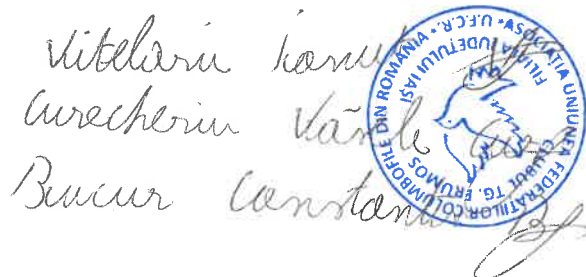 Vitelariu Ionuț
Curecheriu Vasile
Bucur Constantin
ASOCIAȚIA UNIUNEA FEDERAȚIILOR COLUMBOFILE DIN ROMÂNIA • U.F.C.R. •
FILIALA JUDEȚULUI IAȘI
CLUBUL TG. FRUMOS